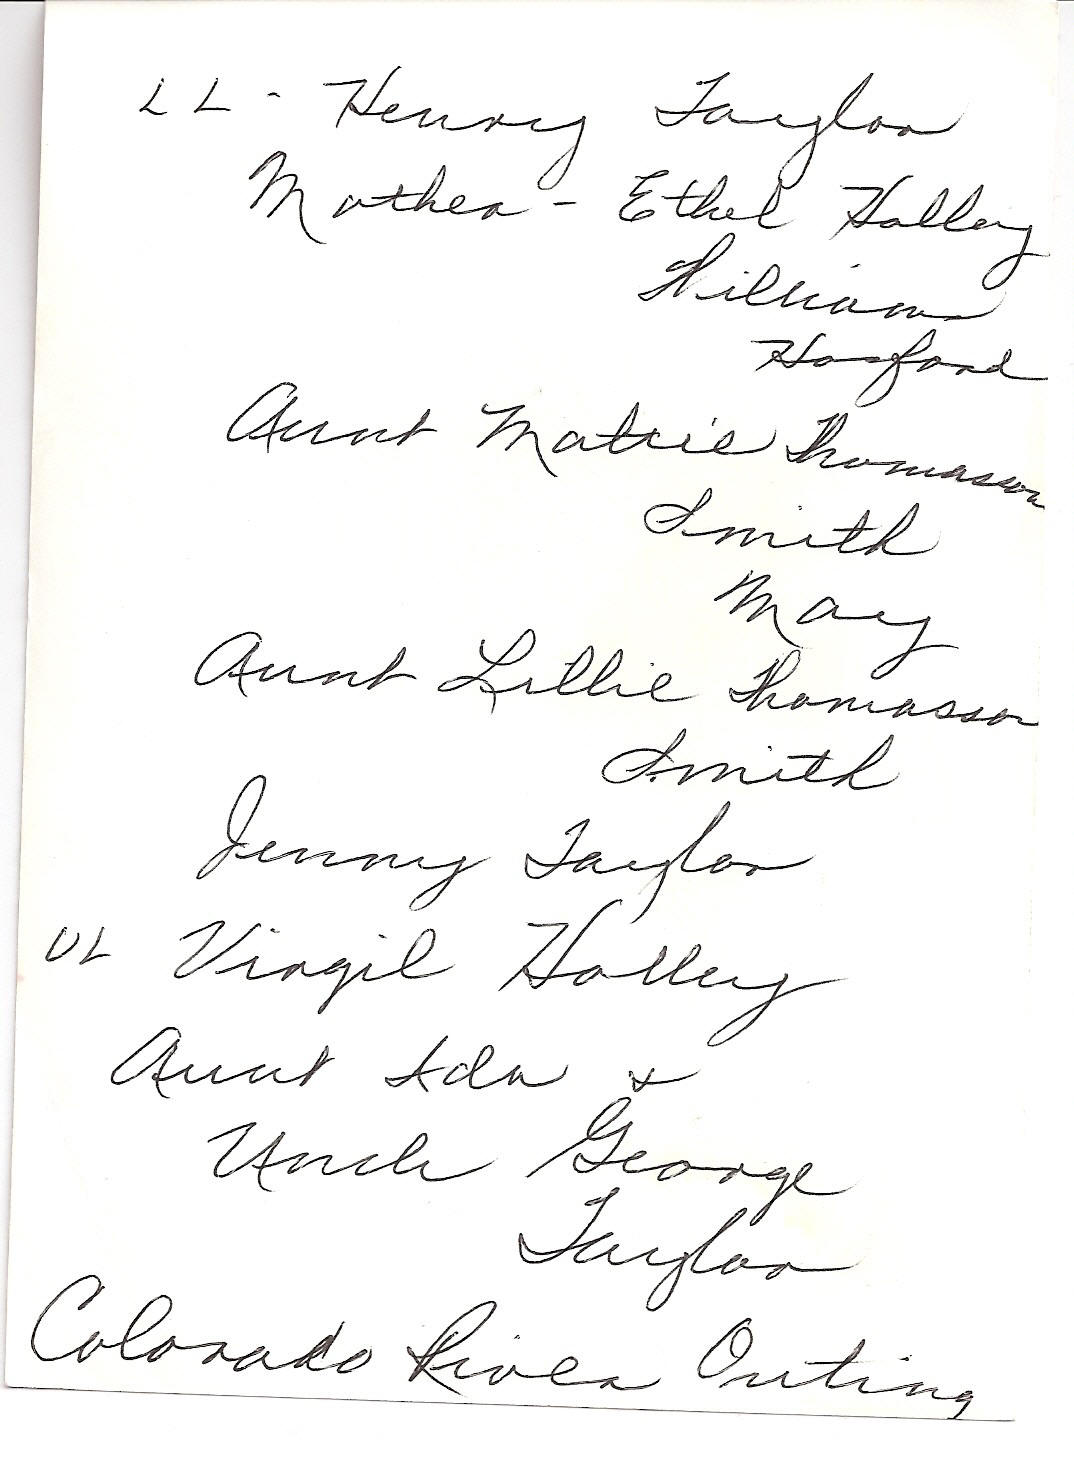 LL - Henry Taylor
Mother - Ethel Holley
Williams
Hosford
Aunt Mattie Thomasson
Smith
May
Aunt Lillie Thomasson
Smith
Jenny Taylor
UL Virgil Holley
Aunt Ada &
Uncle George
Taylor
Colorado River Outing